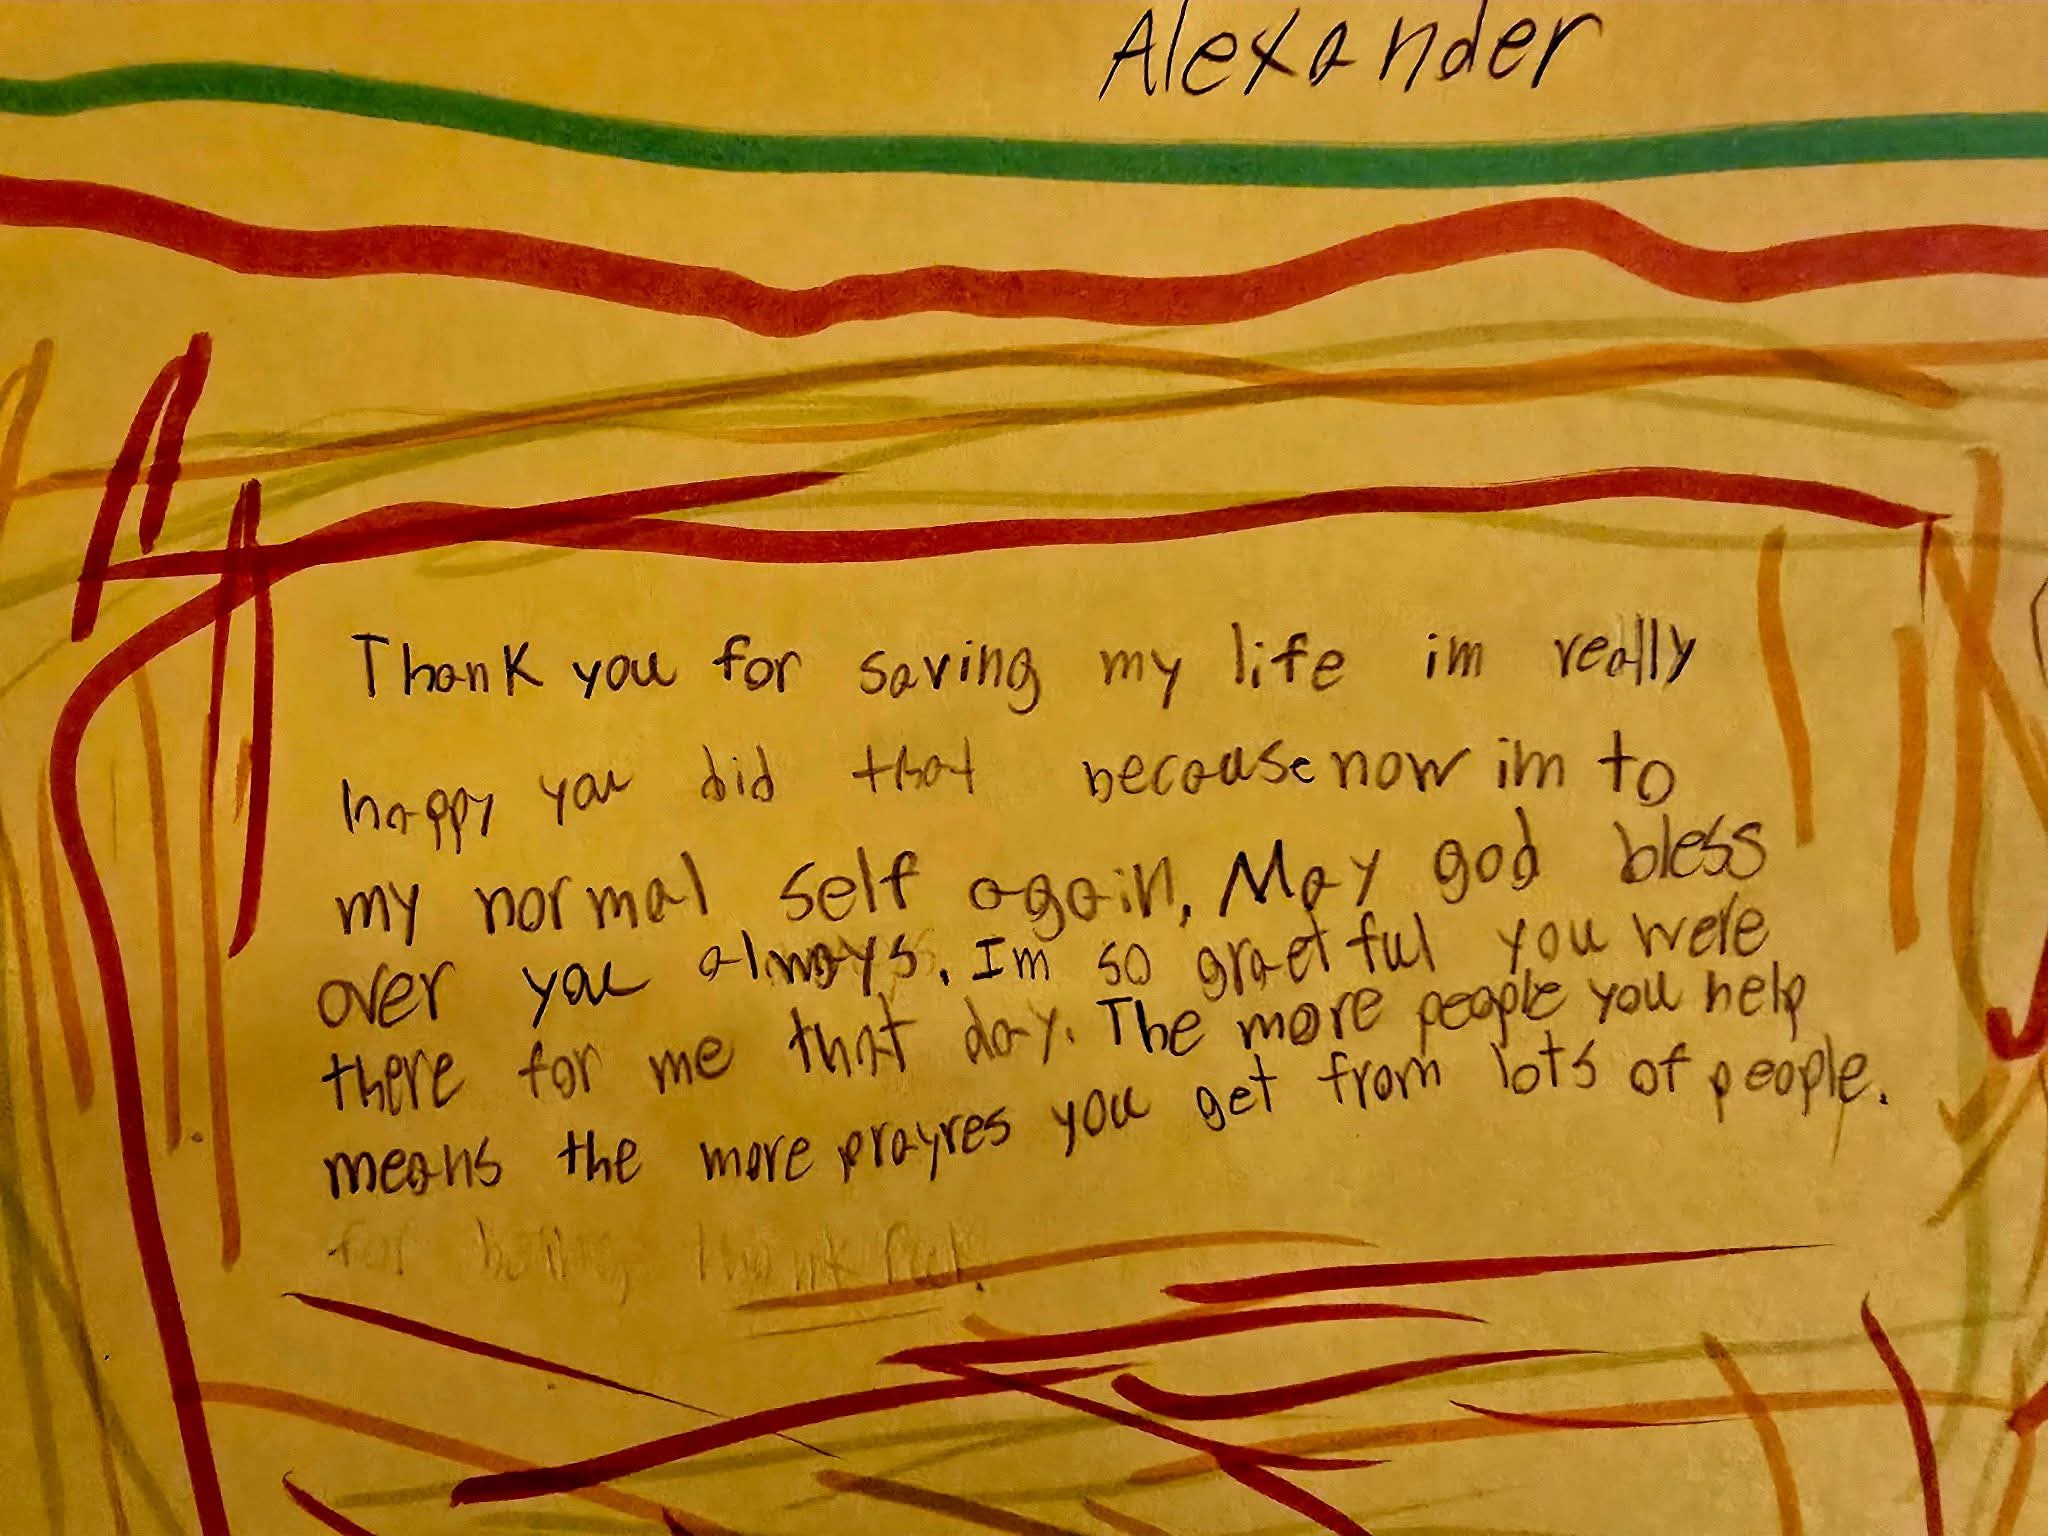 Alexander
Thank you for saving my life im really
happy you did that because now im to
my normal self again. May god bless
over you always. Im so graetful you were
there for me that day. The more people you help
means the more prayres you get from lots of people.
for being thankful.